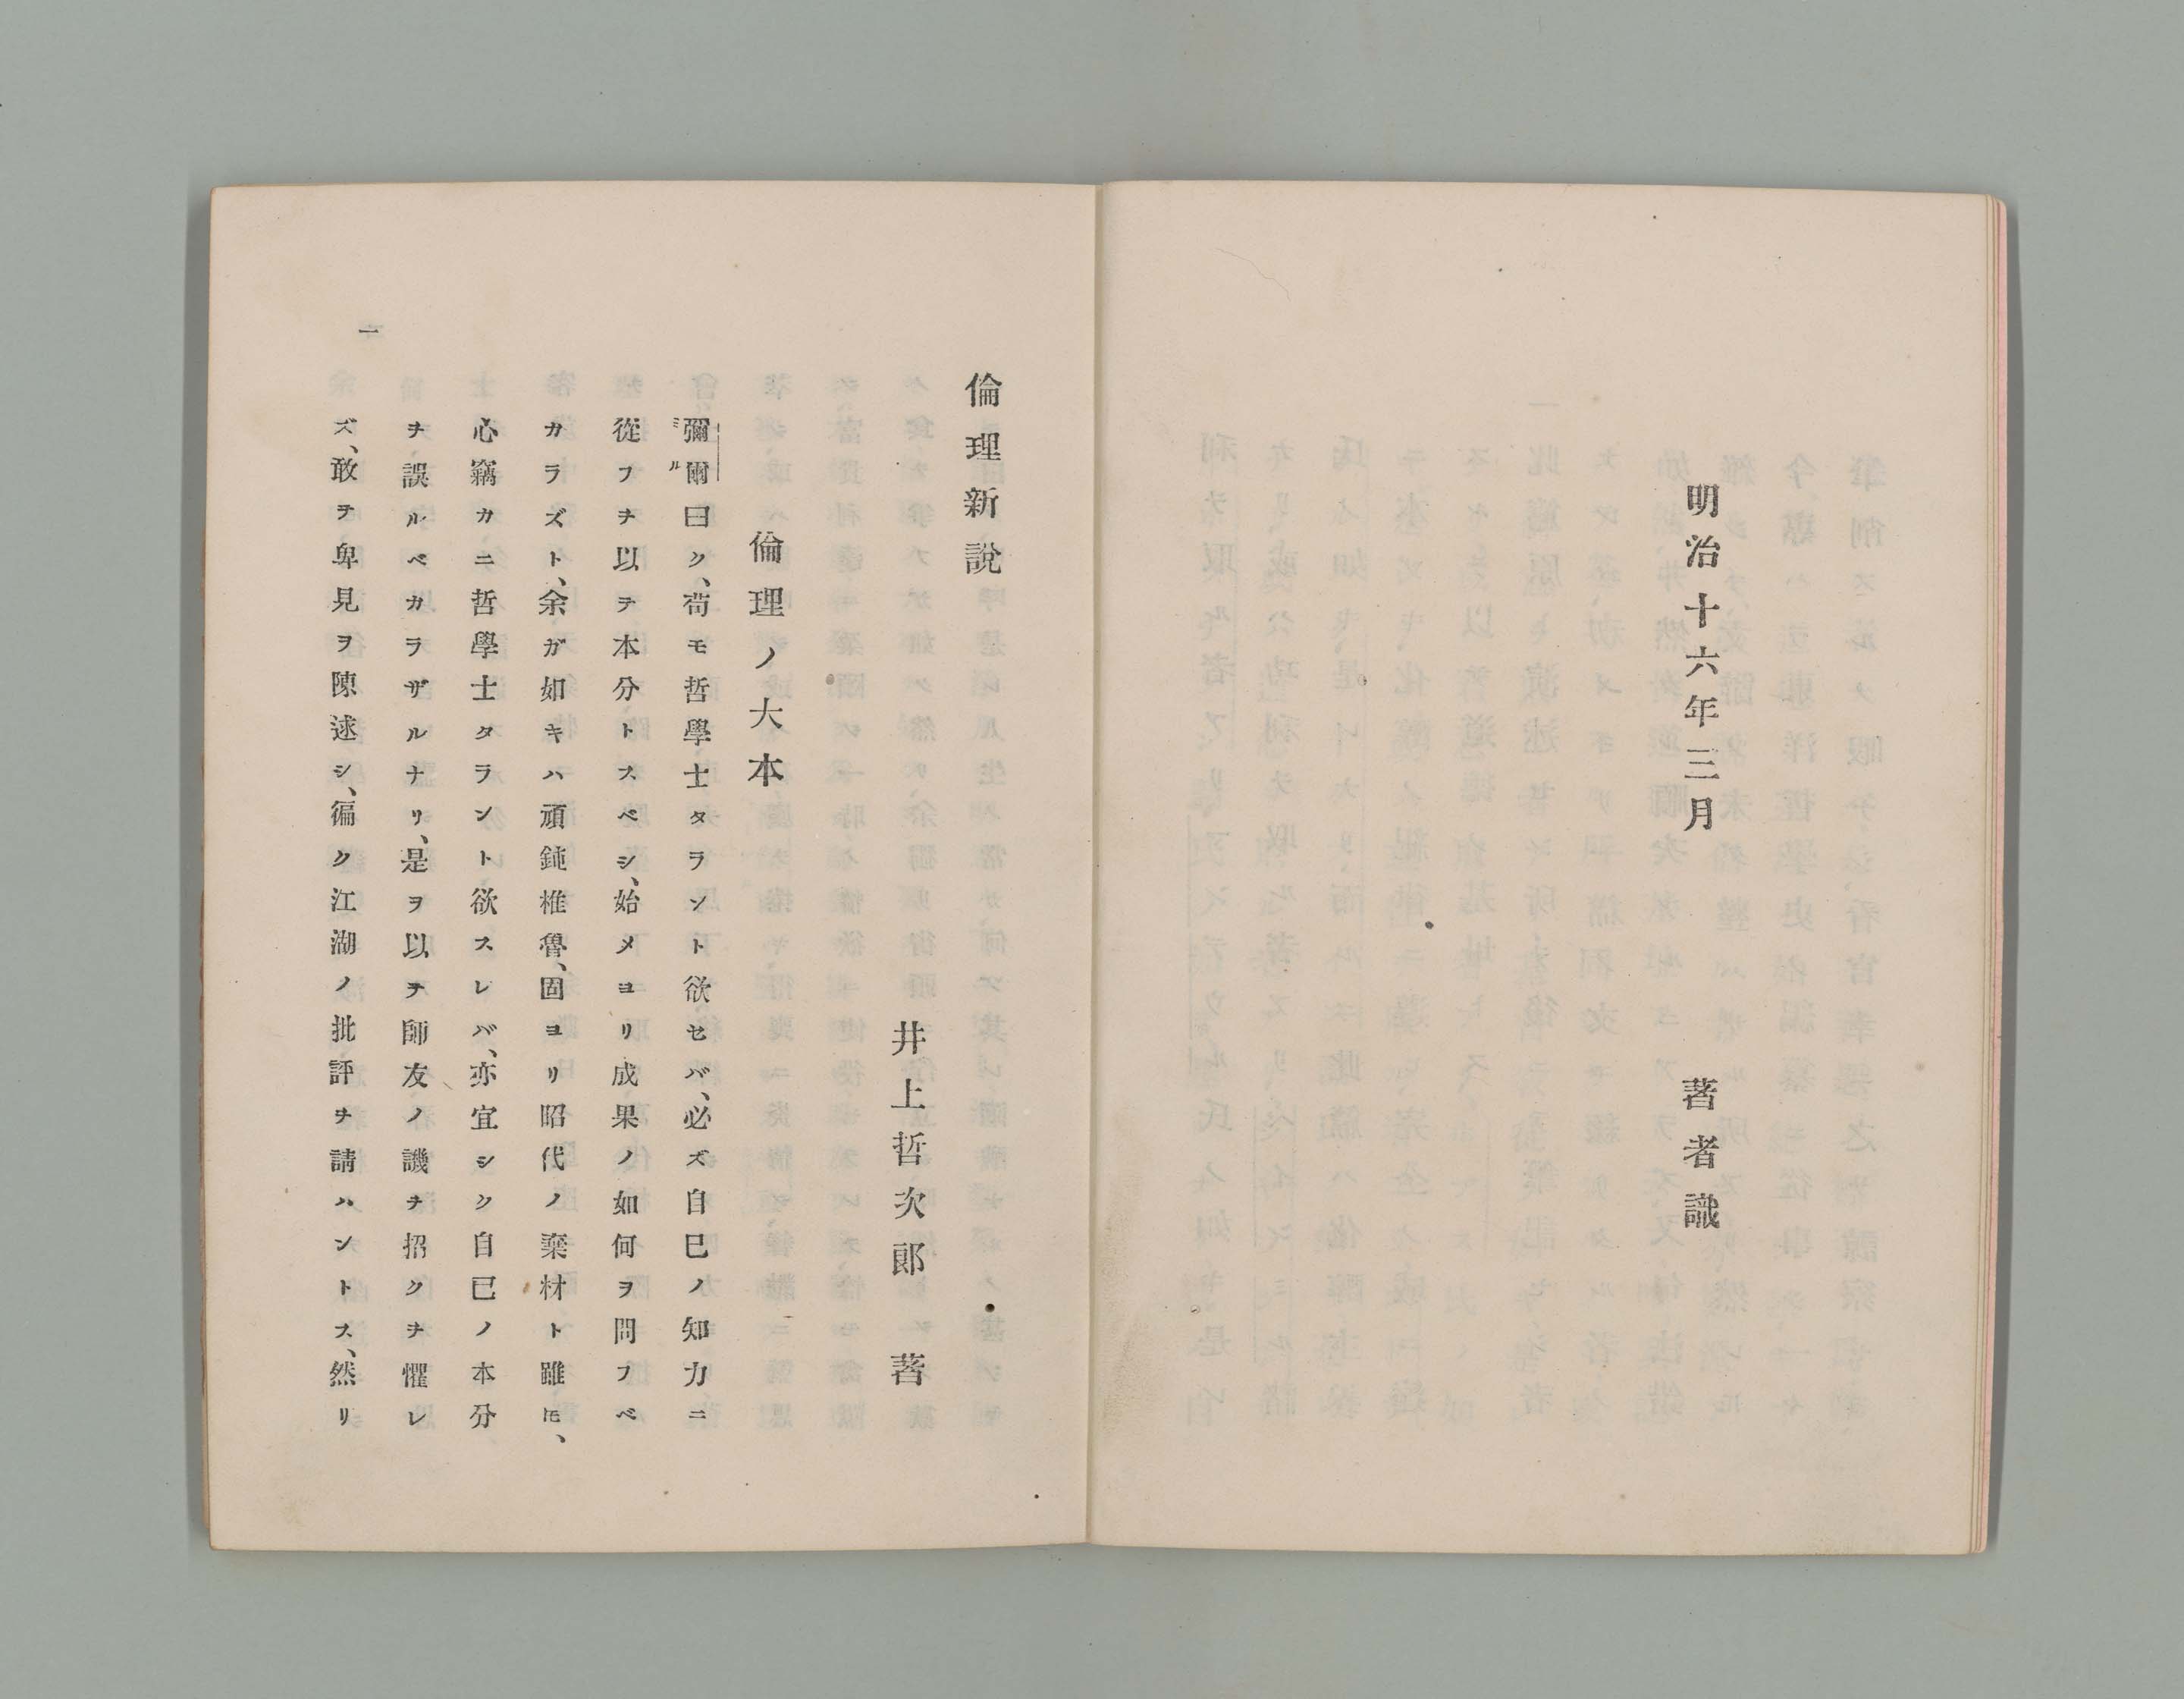 明治十六年三月　著者識
倫理新說
井上哲次郎著
倫理ノ大本
彌爾曰ク、荀モ哲學士タラント欲セバ、必ズ自巳ノ知力ニ
ミル
從フヲ以テ本分トスベシ、始メヨリ成果ノ如何ヲ問フベ
カラズト、余ガ如キハ頑鈍椎魯、固ヨリ昭代ノ棄材ト雖𪜈、
心竊カニ哲學士タラント欲スレバ、亦宜シク自已ノ本分
ヲ誤ルベカラザルナリ、是ヲ以テ師友ノ譏ヲ招クヲ懼レ
ズ、敢テ卑見ヲ陳逑シ、徧ク江湖ノ批評ヲ請ハントス、然リ
一